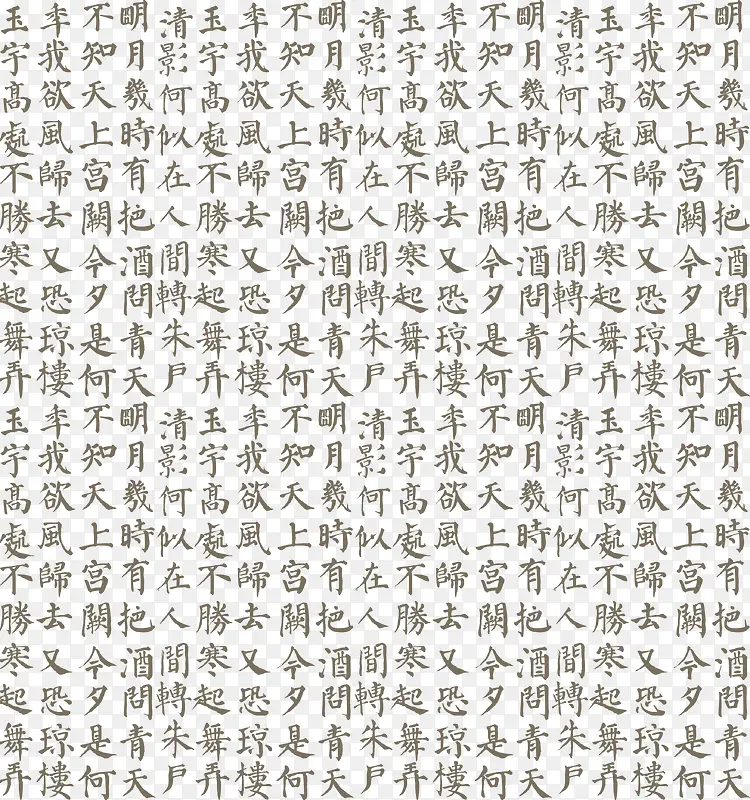 明月幾時有把酒問青天明月幾時有把酒問青天
不知天上宮闕今夕是何不知天上宮闕今夕是何
年我欲風歸去又恐琼樓年我欲風歸去又恐琼樓
玉宇髙處不勝寒起舞弄玉宇髙處不勝寒起舞弄
清影何似在人間轉朱户清影何似在人間轉朱户
明月幾時有把酒問青天明月幾時有把酒問青天
不知天上宮闕今夕是何不知天上宮闕今夕是何
年我欲風歸去又恐琼樓年我欲風歸去又恐琼樓
玉宇髙處不勝寒起舞弄玉宇髙處不勝寒起舞弄
清影何似在人間轉朱户清影何似在人間轉朱户
明月幾時有把酒問青天明月幾時有把酒問青天
不知天上宮闕今夕是何不知天上宮闕今夕是何
年我欲風歸去又恐琼樓年我欲風歸去又恐琼樓
玉宇髙處不勝寒起舞弄玉宇髙處不勝寒起舞弄
清影何似在人間轉朱户清影何似在人間轉朱户
明月幾時有把酒問青天明月幾時有把酒問青天
不知天上宮闕今夕是何不知天上宮闕今夕是何
年我欲風歸去又恐琼樓年我欲風歸去又恐琼樓
玉宇髙處不勝寒起舞弄玉宇髙處不勝寒起舞弄